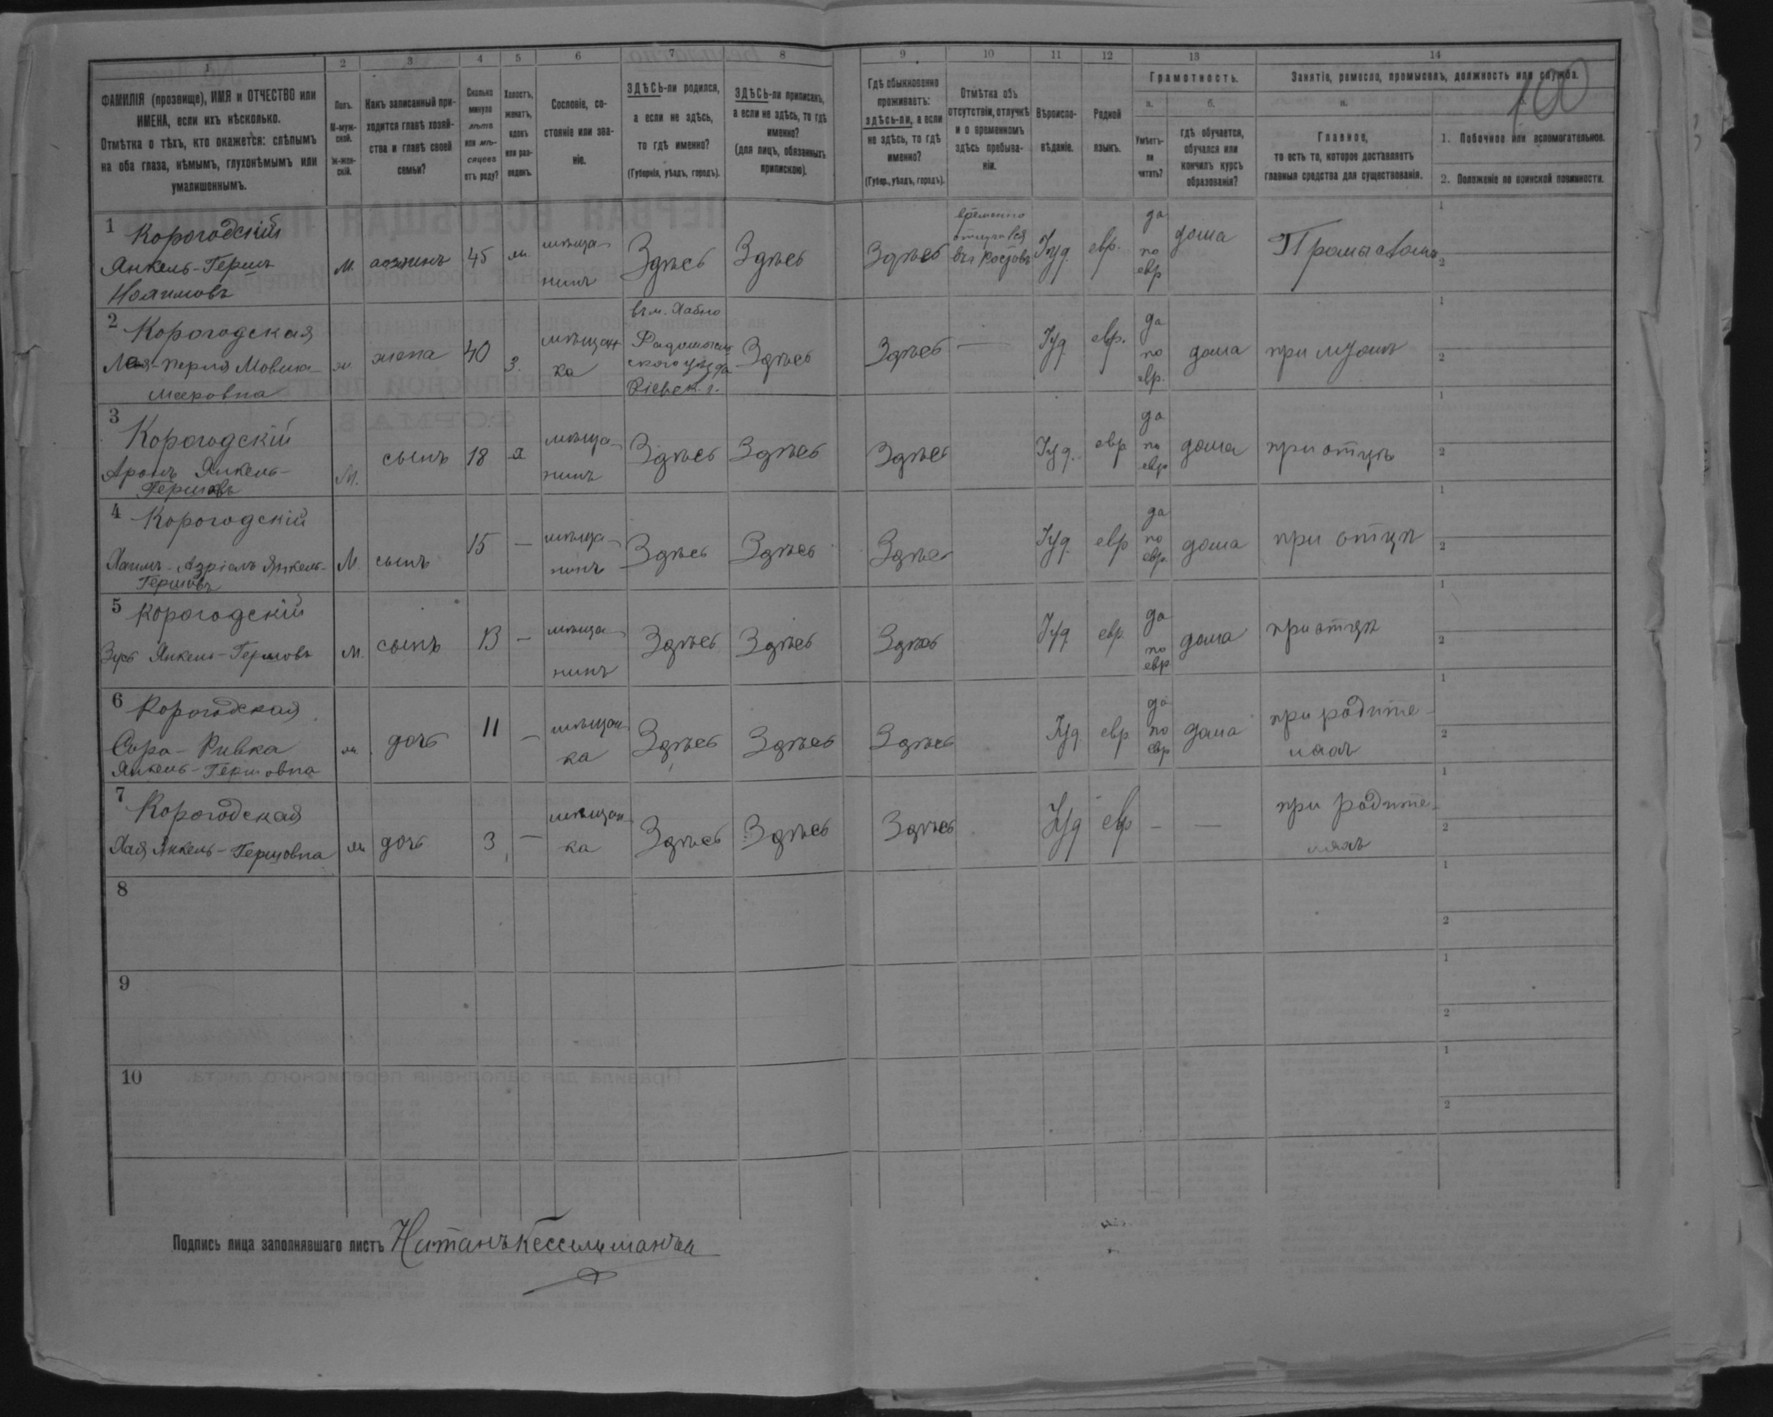 100
1 2 3 4 5 6 7 8 9 10 11 12 13 14
ФАМИЛІЯ (прозвище), ИМЯ и ОТЧЕСТВО или ИМЕНА, если ихъ нѣсколько.
Отмѣтка о тѣхъ, кто окажется: слѣпымъ на оба глаза, нѣмымъ, глухонѣмымъ или умалишеннымъ.
Полъ. М-мужской. Ж-женскій.
Какъ записанный приходится главѣ хозяйства и главѣ своей семьи?
Сколько минуло лѣтъ или мѣсяцевъ отъ роду?
Холостъ, женатъ, вдовъ или разведенъ.
Сословіе, состояніе или званіе.
ЗДѢСЬ-ли родился, а если не здѣсь, то гдѣ именно? (Губернія, уѣздъ, городъ).
ЗДѢСЬ-ли приписанъ, а если не здѣсь, то гдѣ именно? (для лицъ, обязанныхъ припискою).
Гдѣ обыкновенно проживаетъ: здѣсь-ли, а если не здѣсь, то гдѣ именно? (Губер., уѣздъ, городъ).
Отмѣтка объ отсутствіи, отлучкѣ и о временномъ здѣсь пребываніи.
Вѣроисповѣданіе.
Родной языкъ.
Грамотность.
а. Умѣетъ-ли читать?
б. гдѣ обучается, обучался или кончилъ курсъ образованія?
Занятіе, ремесло, промыселъ, должность или служба.
а. Главное, то есть то, которое доставляетъ главныя средства для существованія.
1. Побочное или вспомогательное.
2. Положеніе по воинской повинности.
1 Корогодскій
Янкель-Гершъ
м. хозяинъ 45 ж. мѣщанинъ Здѣсь Здѣсь Здѣсь временно въ Іуд. евр. да по евр дома
2 Корогодская
ж жена 40 з. мѣщанка въ м. Хабно Радомысльского уѣзда Кіевск. г. Здѣсь Здѣсь — Іуд евр. да по евр. дома при мужѣ
3 Корогодскій
Аронъ Янкель-
Гершовъ
М. сынъ 18 х мѣщанинъ Здѣсь Здѣсь Здѣсь Іуд. евр да по евр дома при отцѣ
4 Корогодскій
Хаимъ-Азріель Янкель-
Гершовъ
М сынъ 15 — мѣщанинъ Здѣсь Здѣсь Здѣсь Іуд. евр да по евр. дома при отцѣ
5 Корогодскій
Зусь Янкель-Гершовъ
м. сынъ 13 — мѣщанинъ Здѣсь Здѣсь Здѣсь Іуд евр. да по евр дома при отцѣ
6 Корогодская
Сура-Ривка
Янкель-Гершовна
ж дочь 11 — мѣщанка Здѣсь Здѣсь Здѣсь Іуд. евр да по евр дома при родителяхъ
7 Корогодская
Хая Янкель-Гершовна
ж дочь 3 — мѣщанка Здѣсь Здѣсь Здѣсь Іуд евр — — при родителяхъ
8
9
10
Подпись лица заполнявшаго листъ